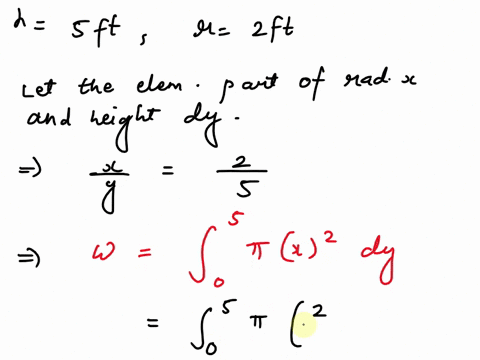 h = 5 ft, r = 2 ft
Let the elem. part of rad. x
and height dy.
⇒ x/y = 2/5
⇒ W = ∫₀⁵ π (x)² dy
= ∫₀⁵ π (2